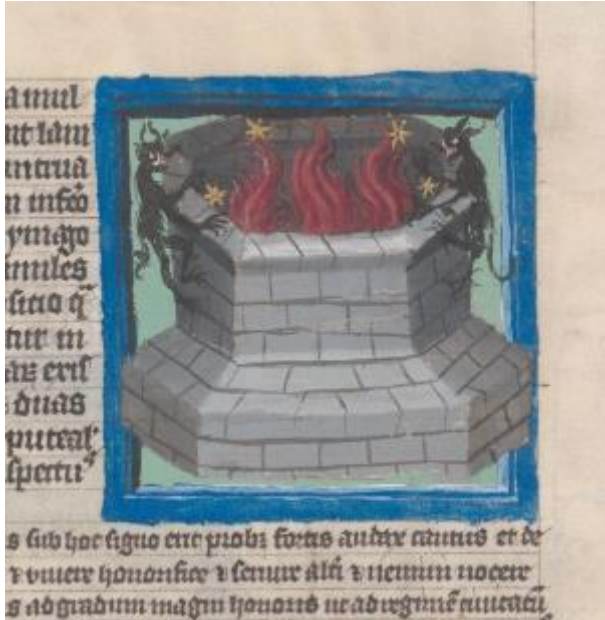 a mul
ut lam
n infēo
ymago
miles
sicio q̄
tur in
eris
duas
puteal'
spectu⁹
s sub hoc signo erit probꝫ fortis audax cautus et de
⁊ viuere honorifice ⁊ seruire alt̄i ⁊ nemini nocere
s ad gradum magni honoris ut ad regimē ciuitatū